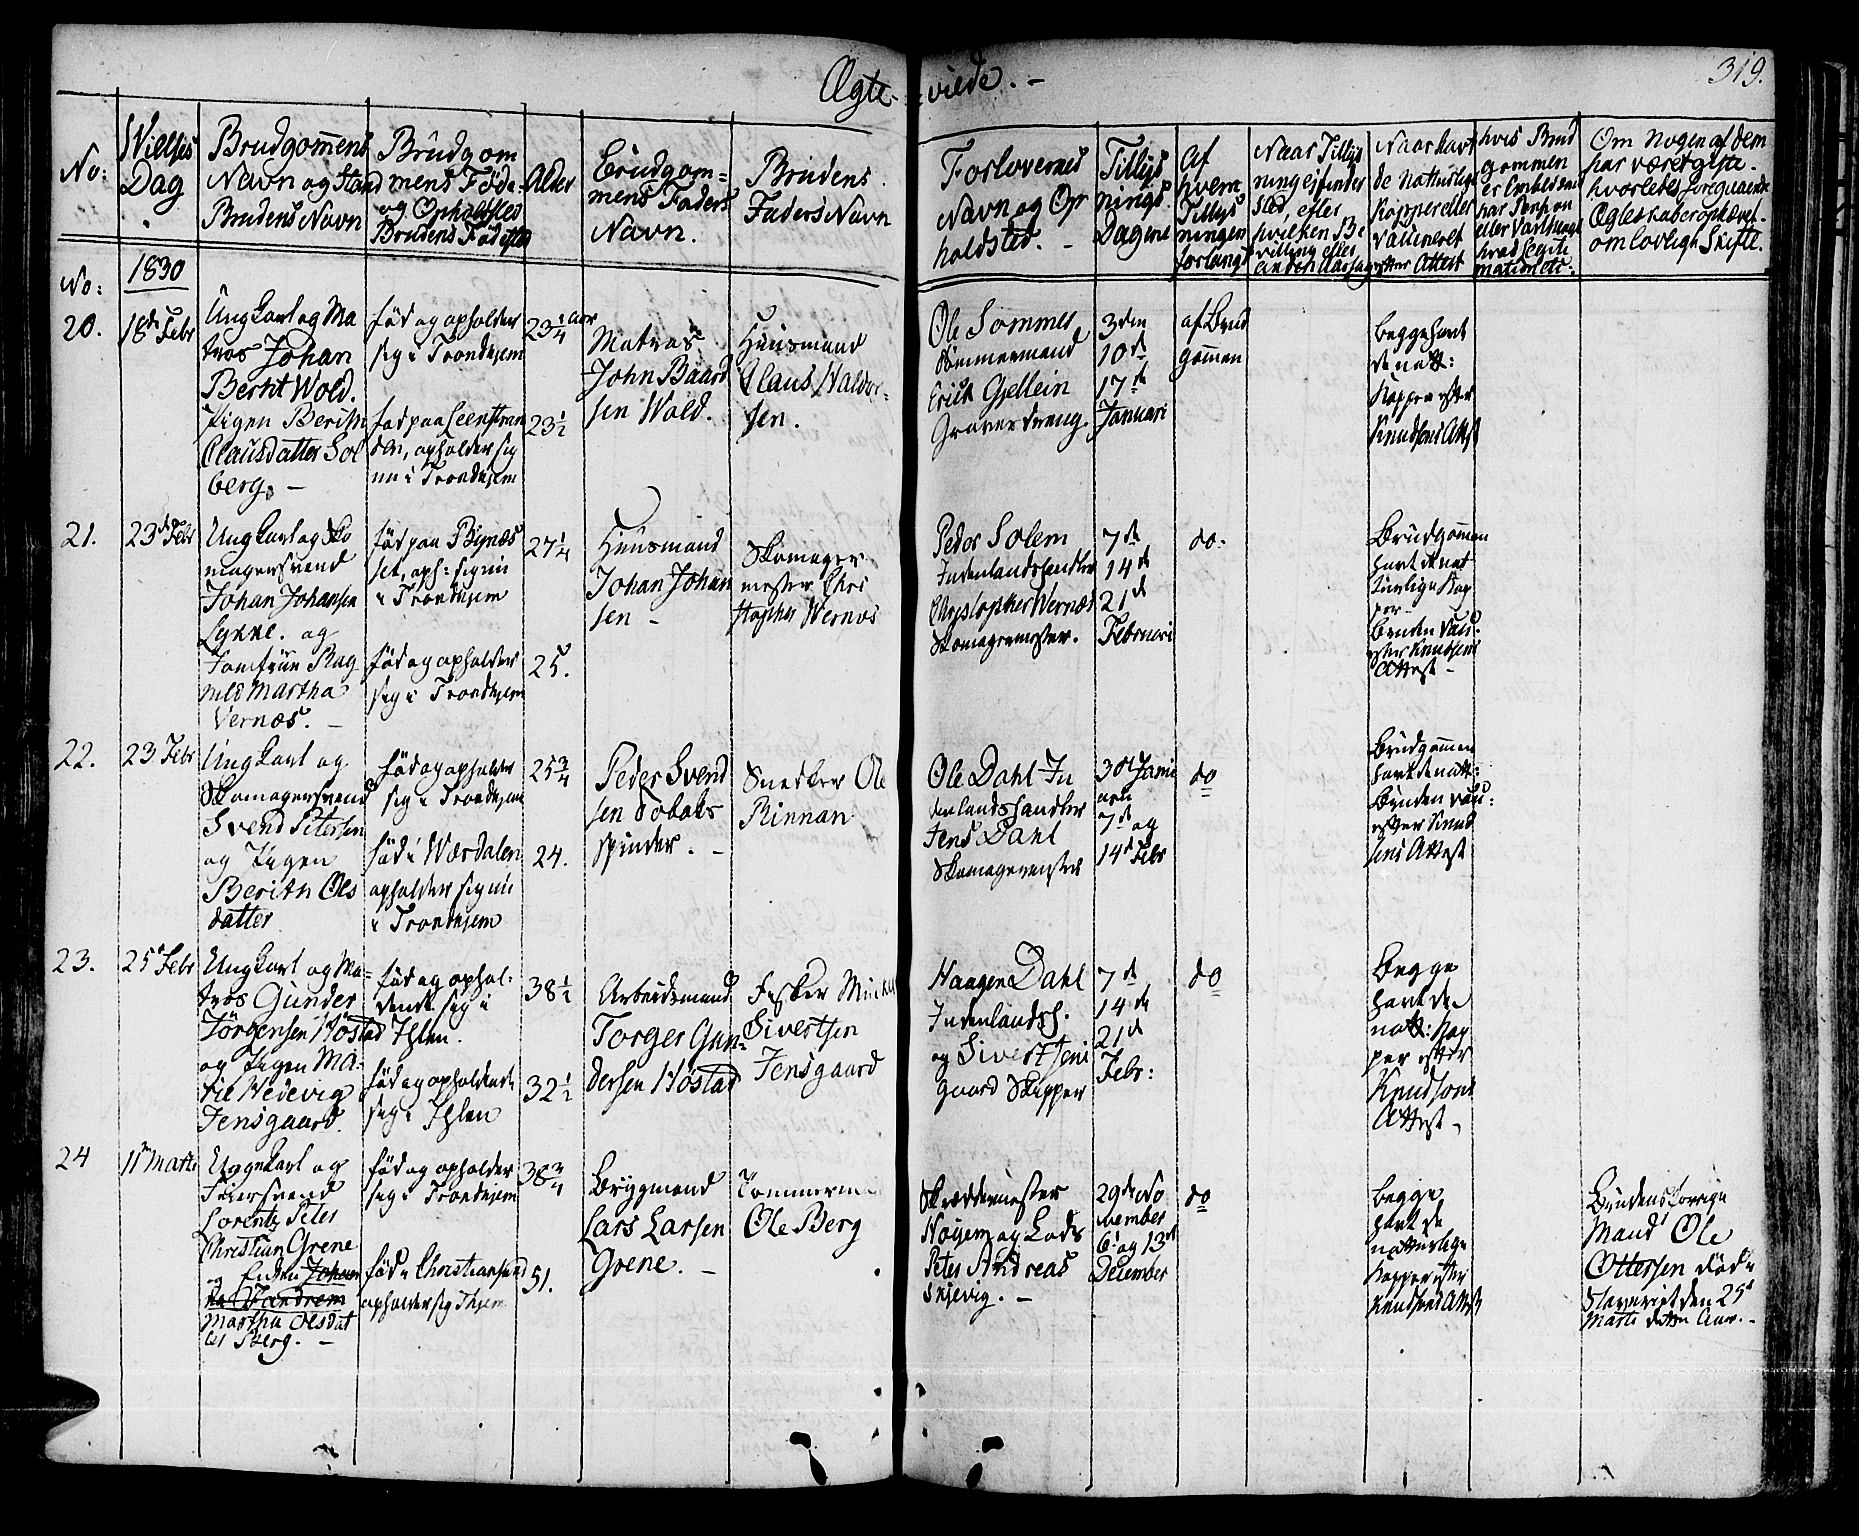 Ægte-viede. -
319.
No:
Vielses
Dag
Brudgom̅ens
Navn og Stand
Brudens Navn
Brudgom
mens Føde-
og Opholdsted
Brudens Fødested
Alder
Brudgom=
mens Faders
Navn.
Brudens
Faders Navn
Forlovernes
Navn og Op
holdsted. -
Tillys
nings.
Dagene
Af
hvem
Tillys
ningen
forlangt
Naar Tillys
ning ej finder
Sted, efter
hvilken Be
villing eller
anden Aarsag
Naar havt
de Naturlige
Kopper eller
Vaccineret
efter Attest
hvis Brud
gommen
er Embedsmand
har Pension
hvad Legiti
mation etc:
Om Nogen af dem
har været gift.
hvorledes foregaaende
Ægteskaber ophævet.
om lovligt Skifte.
No:
1830
20.
18de Febr
Ungkarl og Ma
tros Johan
Bernt Wold.
Pigen Berith
Clausdatter Sol
berg. -
fød og opholder
sig i Trondhjem
fød paa Leenstran
den, opholder sig
nu i Trondhjem
23 3/4 aar
23 1/2
Matros
John Baard
sen Wold.
Huusmand
Claus Haldor-
sen.
Ole Sommer
Tømmermand
Erich Gjellein
Graverdreng.
3den
10de
17de
Januari
af Brud
gommen
Begge havt
de natt:
Kopper efter
Knudsens Attest
21.
23de Febr
Ungkarl og Sko
magersvend
Johan Johansen
Lykke. og
Jomfrue Rag
nild Martha
Vernæs. -
fød paa Bynæs
set, oph: sig nu
i Trondhjem
fød og opholder
sig i Trondhjem
27 1/4
25.
Huusmand
Johan Johan
sen -
Skomager
mester Chri
stopher Wernes
Peder Solem
Indenlandshandler
Christopher Wernæs
Skomagermester.
7de
14de
21de
Februari
do.
Brudgommen
havt de nat
turlige Kop
per -
Bruden Vac:
efter Knudsens
Attest -
22.
23 Febr
Ungkarl og
Skomagersvend
Svend Petersen
og Pigen
Berith Ols
datter
fød og opholder
sig i Trondhjem
fød i Værdalen
opholder sig nu
i Trondhjem
25 3/4
24.
Peder Svend
sen Tobaks
spinder. -
Snedker Ole
Rinnan
Ole Dahl In
denlandshandler
Jens Dahl
Skomagermester
30 Janu
ari
7de og
14de Febr
do
Brudgommen
havt de natt:
Bruden Vac:
efter Knud
sens Attest
23.
25 Febr
Ungkarl og Ma=
tros Gunder
Jörgensen Höstad
og Pigen Ma-
til Hedevig
Jensgaard.
fød og ophol-
dende sig i
Ihlen.
fød og opholdende
sig i Ihlen
38 1/2
32 1/2
Arbeidsmand
Torger Gun=
dersen Höstad
Fisker Mickel
Sivertsen
Jensgaard
Haagen Dahl
Indenlandsh.
og Sivert Jens
gaard Skipper
7de
14de
21de
Febr:
do
Begge
havt de
natt: Kop
per efter
Knudsens
Attest -
24
11te Marts
Ungekarl og
Feiersvend
Lorentz Peter
Christian Grene
og Enken Johan
na Fandrem
Martha Olsdat
ter Berg. -
fød og opholder
sig i Trondhjem
fød i Christiansund
opholder sig Thjem
38 3/4
51.
Brygmand
Lars Larsen
Grene. -
Tømmerm
Ole Berg
Skræddermester
Høyem og Lods
Peter Andreas
Skjevig. -
29de No
vember
6te og 13de
December
do
Begge
havt de
naturlige
Kopper efter
Knudsens Attest
Brudens forrige
Mand Ole
Ottersen død i
Slaveriet den 25de
Marts dette Aar. -